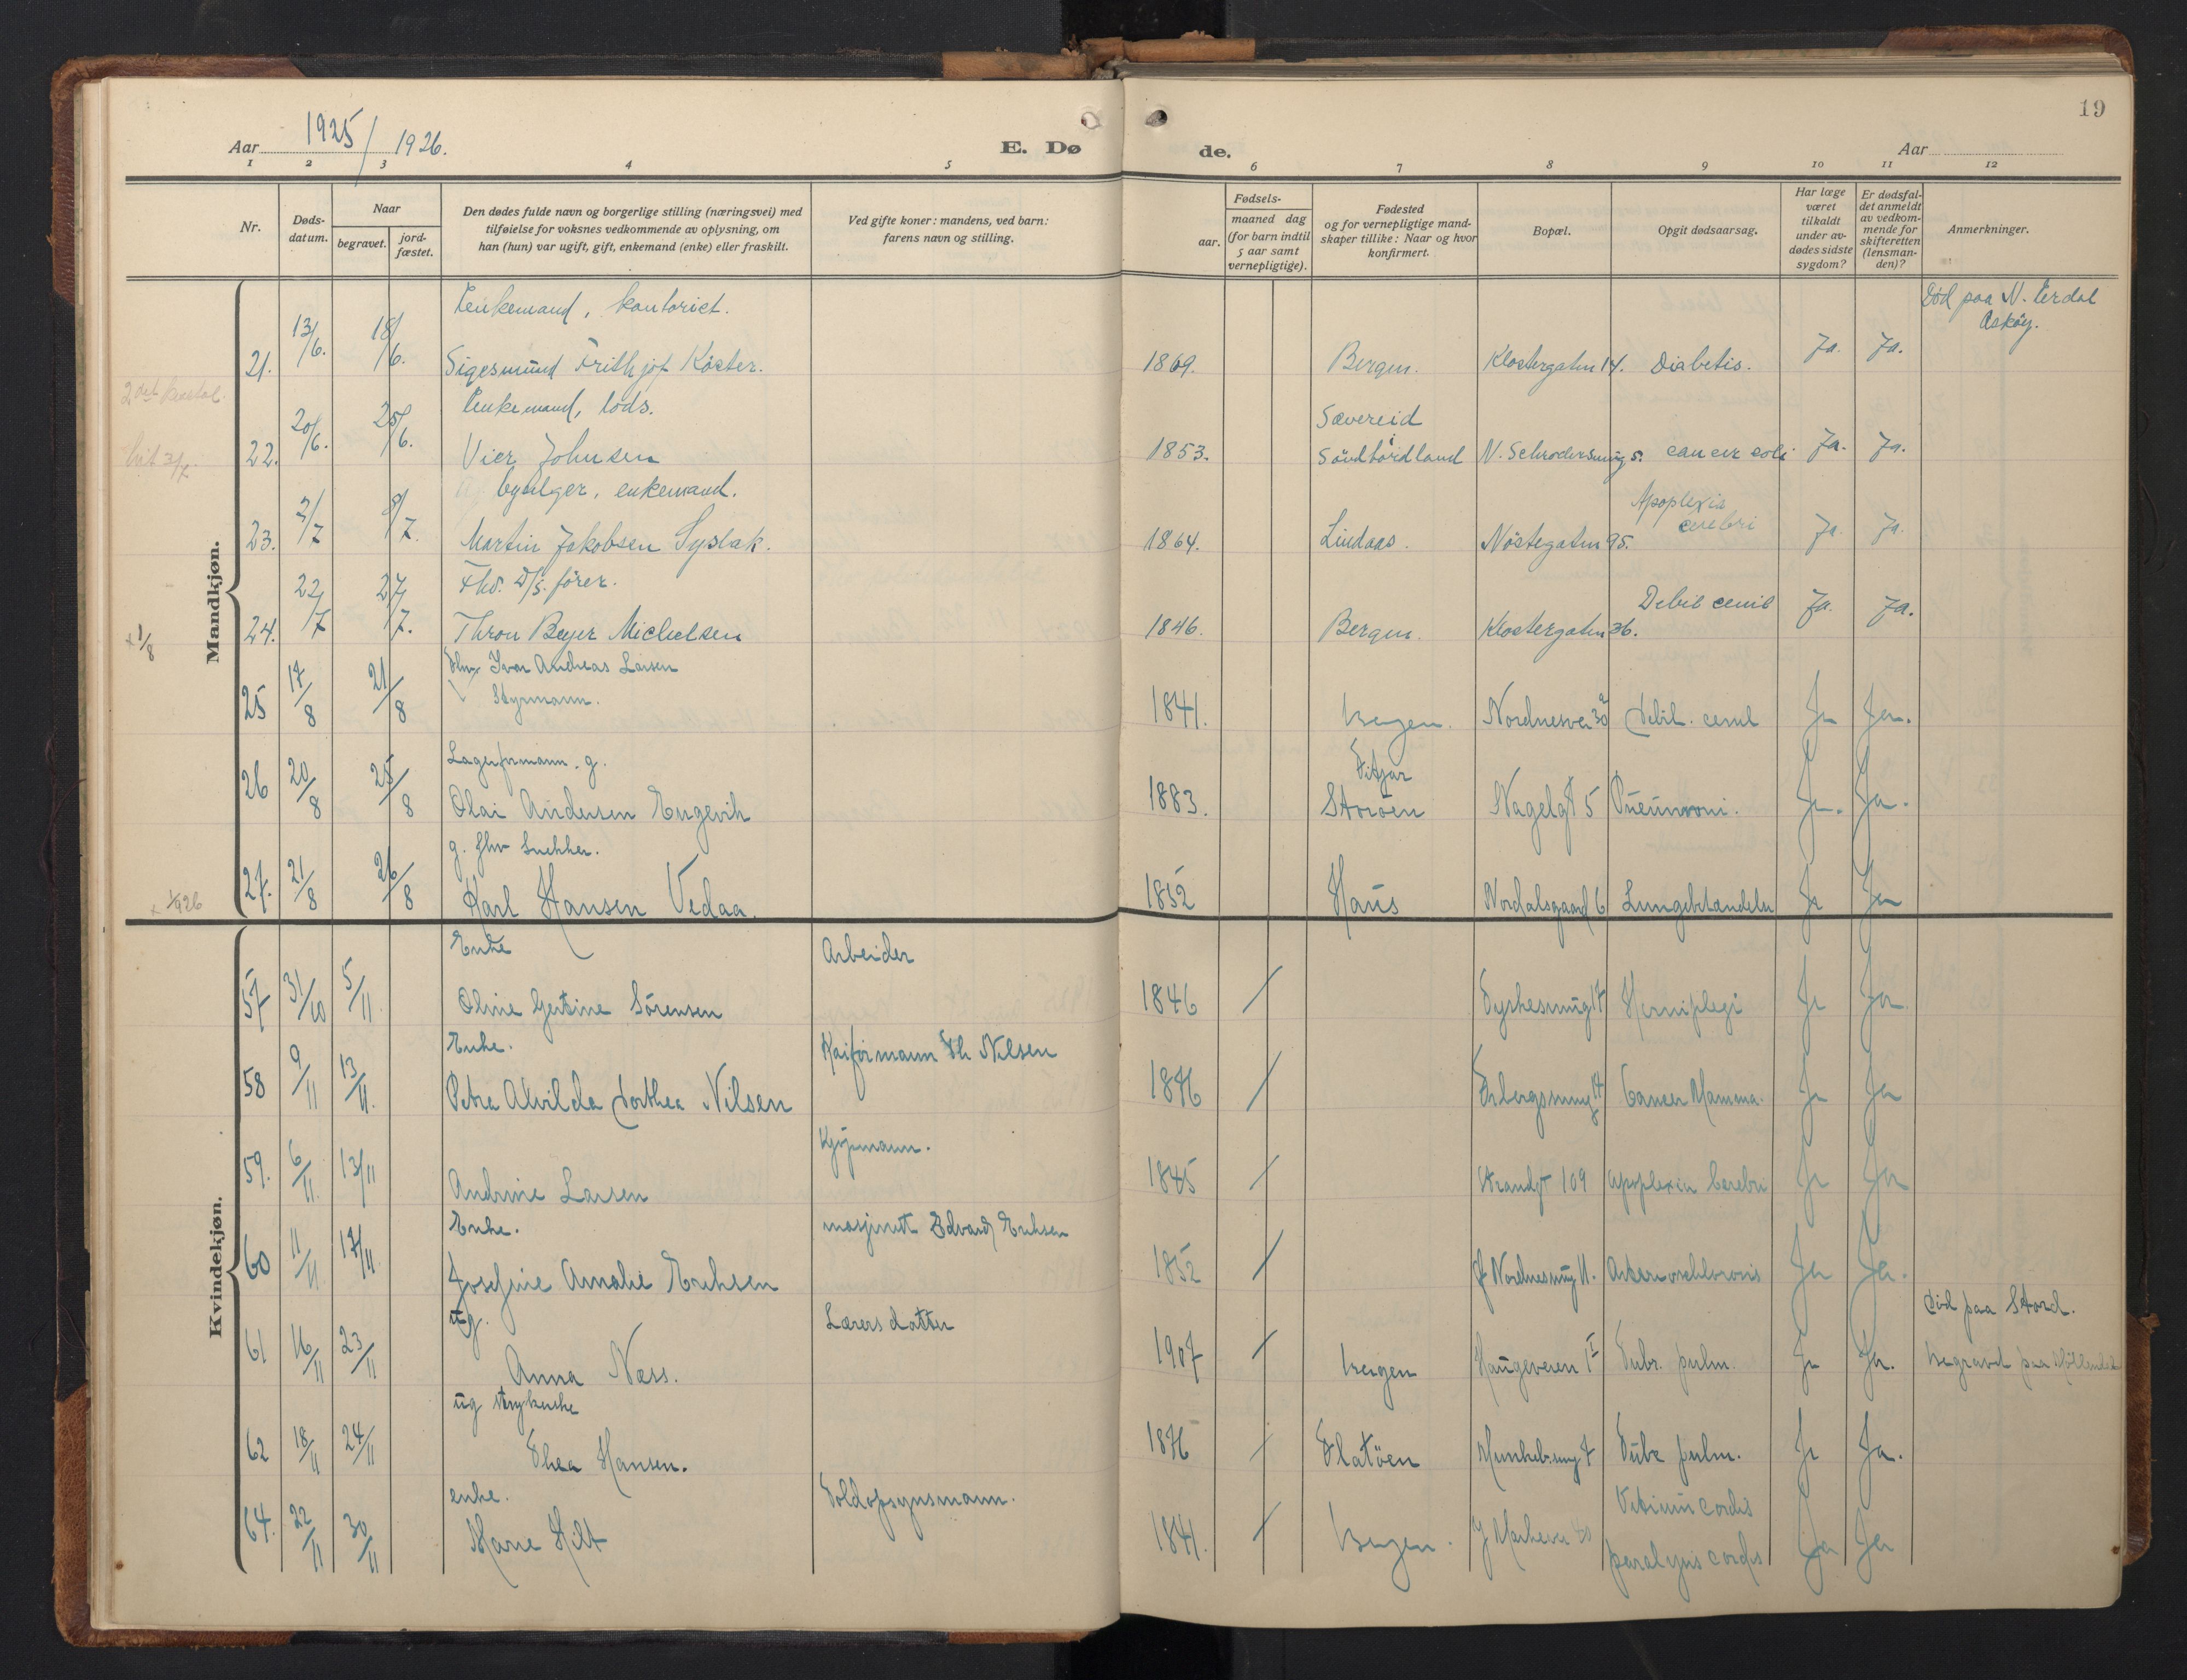 19
Aar 1925/1926.
E. Dø
de.
Aar
1 2 3 4 5 6 7 8 9 10 11 12
Nr.
Døds-
datum.
Naar
begravet.
jord-
fæstet.
Den dødes fulde navn og borgerlige stilling (næringsvei) med
tilføielse for voksnes vedkommende av oplysning, om
han (hun) var ugift, gift, enkemand (enke) eller fraskilt.
Ved gifte koner: mandens, ved barn:
farens navn og stilling.
Fødsels-
aar.
maaned dag
(for barn indtil
5 aar samt
vernepligtige).
Fødested
og for vernepligtige mand-
skaper tillike: Naar og hvor
konfirmert.
Bopæl.
Opgit dødsaarsag.
Har læge
været
tilkaldt
under av-
dødes sidste
sygdom?
Er dødsfal-
det anmeldt
av vedkom-
mende for
skifteretten
(lensman-
den)?
Anmerkninger.
Mandkjøn.
Enkemand, kontorist.
Død paa N. Erdal
Askøy.
21. 13/6. 18/6. Sigesmund Frithjof Köster. 1869. Bergen. Klostergaten 14. Diabetis. Ja. Ja.
Enkemand, lods.
Sævereid
i
22. 20/6. 25/6. Vier Johnsen 1853. Söndhordland N. Schrödersmug 5. cancer coli Ja. Ja.
enkemand.
Apoplexia
cerebri
23. 2/7 8/7. Martin Jakobsen Syslak. 1864. Lindaas. Nöstegaten 95. Ja. Ja.
Fhv. D/S. förer.
24. 22/7 27/7. Thron Beyer Michelsen 1846. Bergen. Klostergaten 36. Debil senil Ja. Ja.
+ 1/8
Fhv. Ivar Andreas Larsen
Styrmann.
25 17/8 21/8 1841. Bergen. Debil. senil Ja Ja.
Lagerformann. g.
Fitjar
26 20/8 25/8 Olai Andersen Engevik 1883. Storöen Nagelgt 5 Pneumoni. Ja. Ja.
g. fhv Snekker.
27. 21/8 26/8 Karl Hansen Vedaa. 1852 Haus Nordalsgaard 6 Lungebetændelse Ja Ja
Kvindekjøn.
Enke
Arbeider
57 31/10 5/11 Oline Gertine Sörensen 1846 / Hemiplegi Ja Ja
Enke.
Kaiformann Th Nilsen
58 9/11 13/11. Petra Alvilda Dorthea Nilsen 1846 / Cancer Mamma. Ja Ja
Kjöpmann.
59. 6/11. 13/11 Andrine Larsen 1845 / Strandgt 109 Apoplexia Cerebri Ja Ja
Enke.
masjinist Edvard Eriksen
60 11/11 17/11 Josefine Amalie Eriksen 1852 / Nordnesmug 11. Ja Ja.
ug.
Lærers datter
Död paa Stord.
61 16/11 23/11 Anna Næss. 1907 / Bergen Haugeveien 1 I Tub. pulm. Ja Ja. Begravet paa Möllendal
ug Strykerske
62 18/11 24/11 Thea Hansen. 1876 / Flatöen Tube pulm. Ja Ja.
enke.
Toldopsynsmann.
Vitium cordis
64. 22/11 30/11 Marie Hilt 1841. / Bergen. paralysis cordis Ja Ja